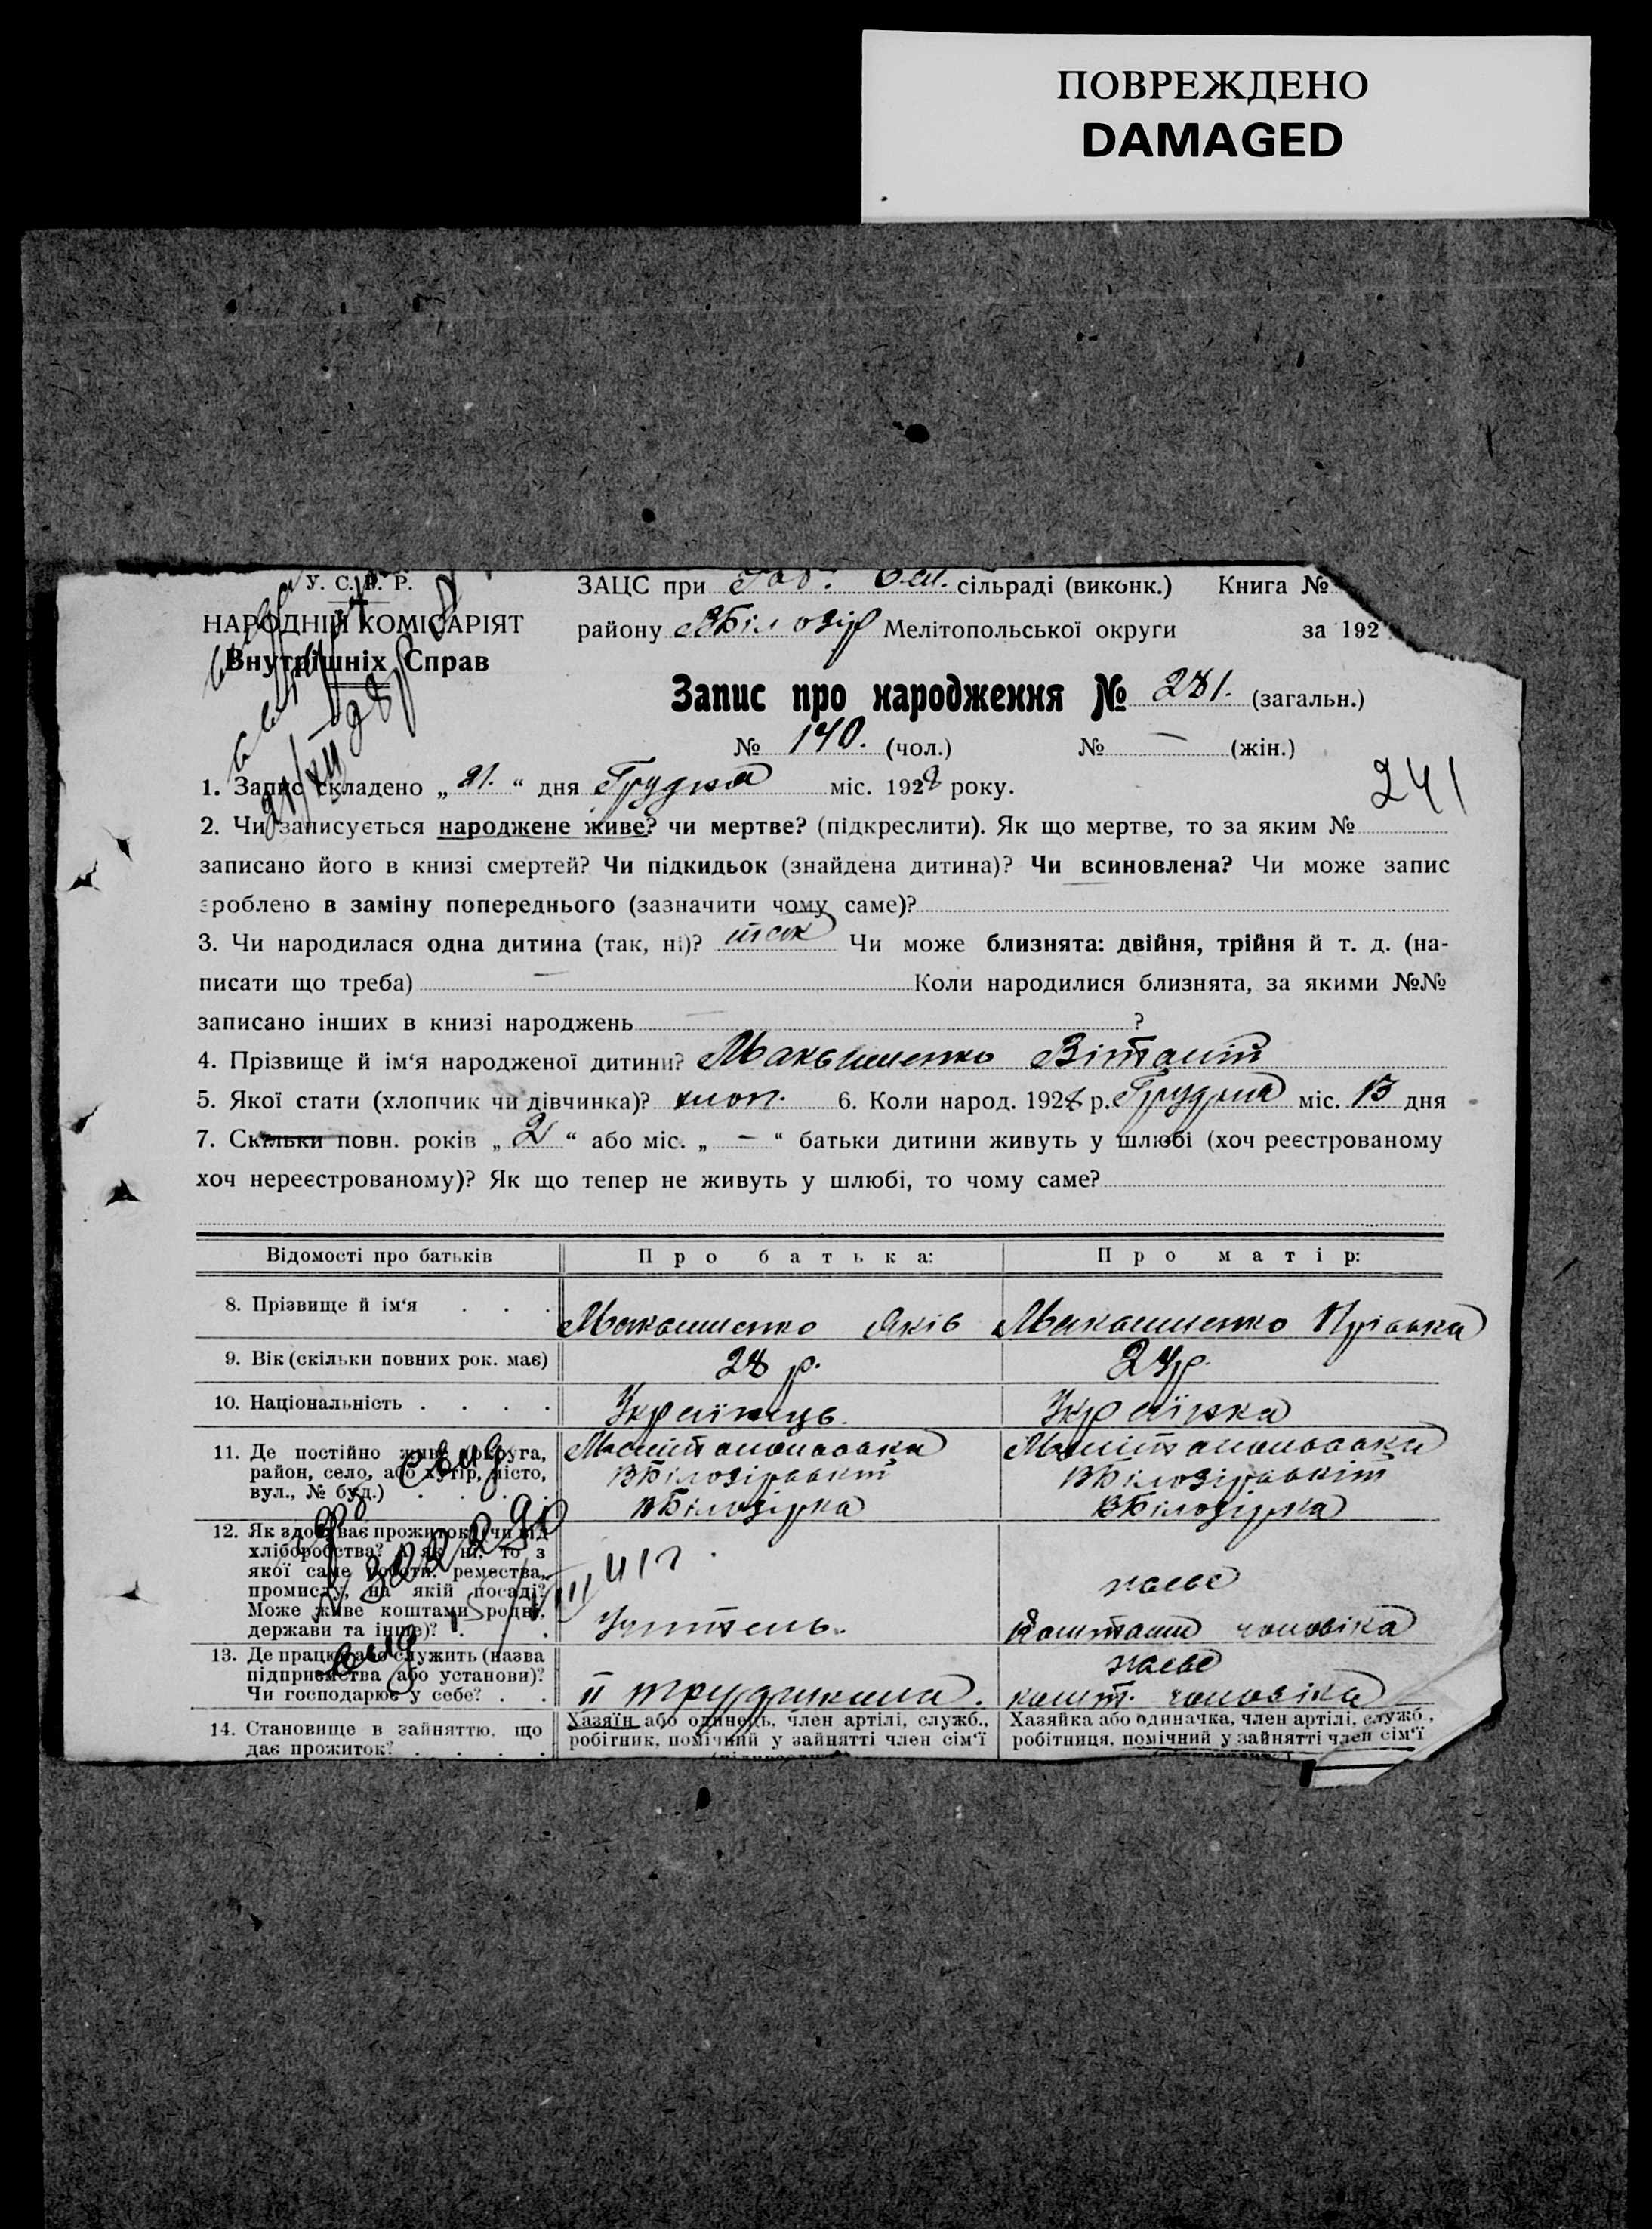 ПОВРЕЖДЕНО
DAMAGED
У. С. Р. Р.
НАРОДНІЙ КОМІСАРІЯТ
Внутрішніх Справ
ЗАЦС при сільраді (виконк.) Книга №
району ВБілозір Мелітопольської округи за 192
Запис про народження № 281. (загальн.)
№ 140. (чол.) № — (жін.)
241
1. Запис складено „ 21. “ дня Грудня міс. 1928 року.
2. Чи записується народжене живе? чи мертве? (підкреслити). Як що мертве, то за яким №
записано його в книзі смертей? Чи підкидьок (знайдена дитина)? Чи всиновлена? Чи може запис
зроблено в заміну попереднього (зазначити чому саме)?
3. Чи народилася одна дитина (так, ні)? так Чи може близнята: двійня, трійня й т. д. (на-
писати що треба) — Коли народилися близнята, за якими №№
записано інших в книзі народжень — ?
4. Прізвище й ім‘я народженої дитини? Віталій
5. Якої стати (хлопчик чи дівчинка)? хлоп. 6. Коли народ. 1928 р. Грудня міс. 13 дня
7. Скільки повн. років „ 2 “ або міс. „ — “ батьки дитини живуть у шлюбі (хоч реєстрованому
хоч нереєстрованому)? Як що тепер не живуть у шлюбі, то чому саме?
Відомості про батьків Про батька: Про матір:
8. Прізвище й ім‘я . . . Яків
9. Вік (скільки повних рок. має) 28 р. 24 р.
10. Національність . . . . Українець. Українка
11. Де постійно живе (округа,
район, село, або хутір, місто,
вул., № буд.) . . . .
Мелітопольська
ВБілозірський
ВБілозірка
Мелітопольська
ВБілозірський
ВБілозірка
12. Як здобуває прожиток (чи від
хліборобства? А як ні, то з
якої саме роботи, ремества,
промислу, на якій посаді?
Може живе коштами родні,
держави та інше)? . .
Учитель.
має
коштами чоловіка
13. Де працює або служить (назва
підприємства або установи)?
Чи господарює у себе? . .
II трудшкола.
має
кошт. чоловіка
14. Становище в зайняттю, що
дає прожиток? . . . .
Хазяїн або одинець, член артілі, служб.,
робітник, помічний у зайнятті член сім‘ї
Хазяйка або одиначка, член артілі, служб.,
робітниця, помічний у зайнятті член сім‘ї